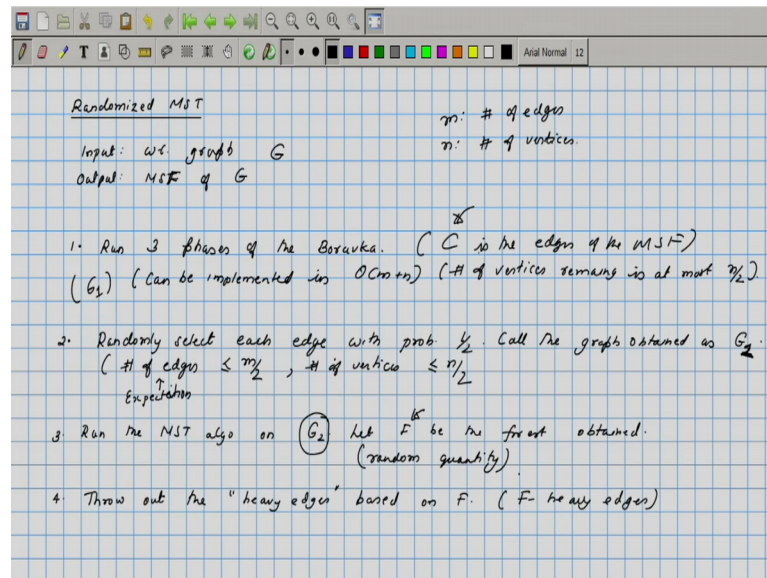 Arial Normal 12
T
Randomized MST
m: # of edges
n: # of vertices.
Input: wt. graph G
Output: MSF of G
1. Run 3 phases of the Boravka. ( C is the edges of the MSF)
(G1) (Can be implemented in O(m+n) (# of vertices remaing is at most n/2).
2. Randomly select each edge with prob. 1/2. Call the graph obtained as G2.
( # of edges ≤ m/2 , # of vertices ≤ n/2
↑
Expectation
3. Run the MST algo on G2. Let F be the forest obtained.
(random quantity).
4. Throw out the "heavy edges" based on F. ( F- heavy edges)